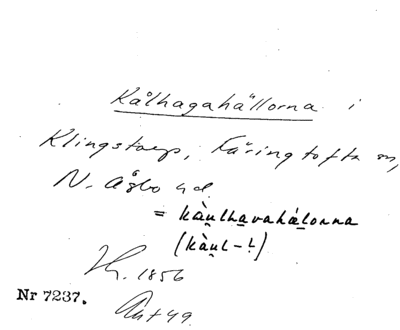 Kålhagahällorna i
Klingstorp, Färingtofta sn,
N. Åsbo hd.
= kàu̯lhavahálonna
(kàu̯l-!)
1856
Nr 7237.
Ant 49.